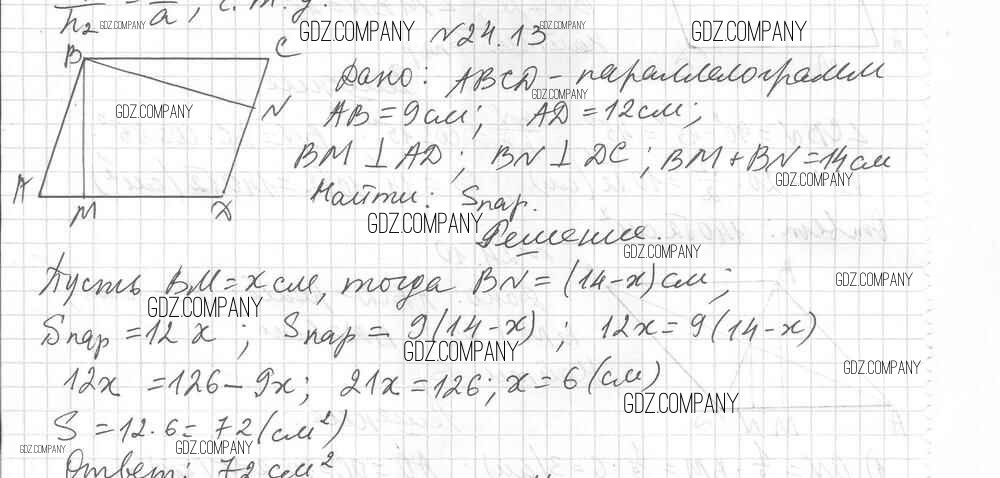 h₂ a, ч.т.д.
GDZ.COMPANY
GDZ.COMPANY №24.13 GDZ.COMPANY GDZ.COMPANY
B C
Дано: ABCD - параллелограмм
GDZ.COMPANY
GDZ.COMPANY N AB = 9 см; AD = 12 см;
BM ⊥ AD; BN ⊥ DC; BM + BN = 14 см
GDZ.COMPANY
A M D Найти: Sпар.
GDZ.COMPANY Решение.
GDZ.COMPANY
Пусть BM = x см, тогда BN = (14-x) см;
GDZ.COMPANY
GDZ.COMPANY
Sпар = 12 x; Sпар = 9(14-x); 12x = 9(14-x)
GDZ.COMPANY
GDZ.COMPANY
12x = 126 - 9x; 21x = 126; x = 6 (см)
GDZ.COMPANY
S = 12·6 = 72 (см²)
GDZ.COMPANY GDZ.COMPANY
Ответ: 72 см²